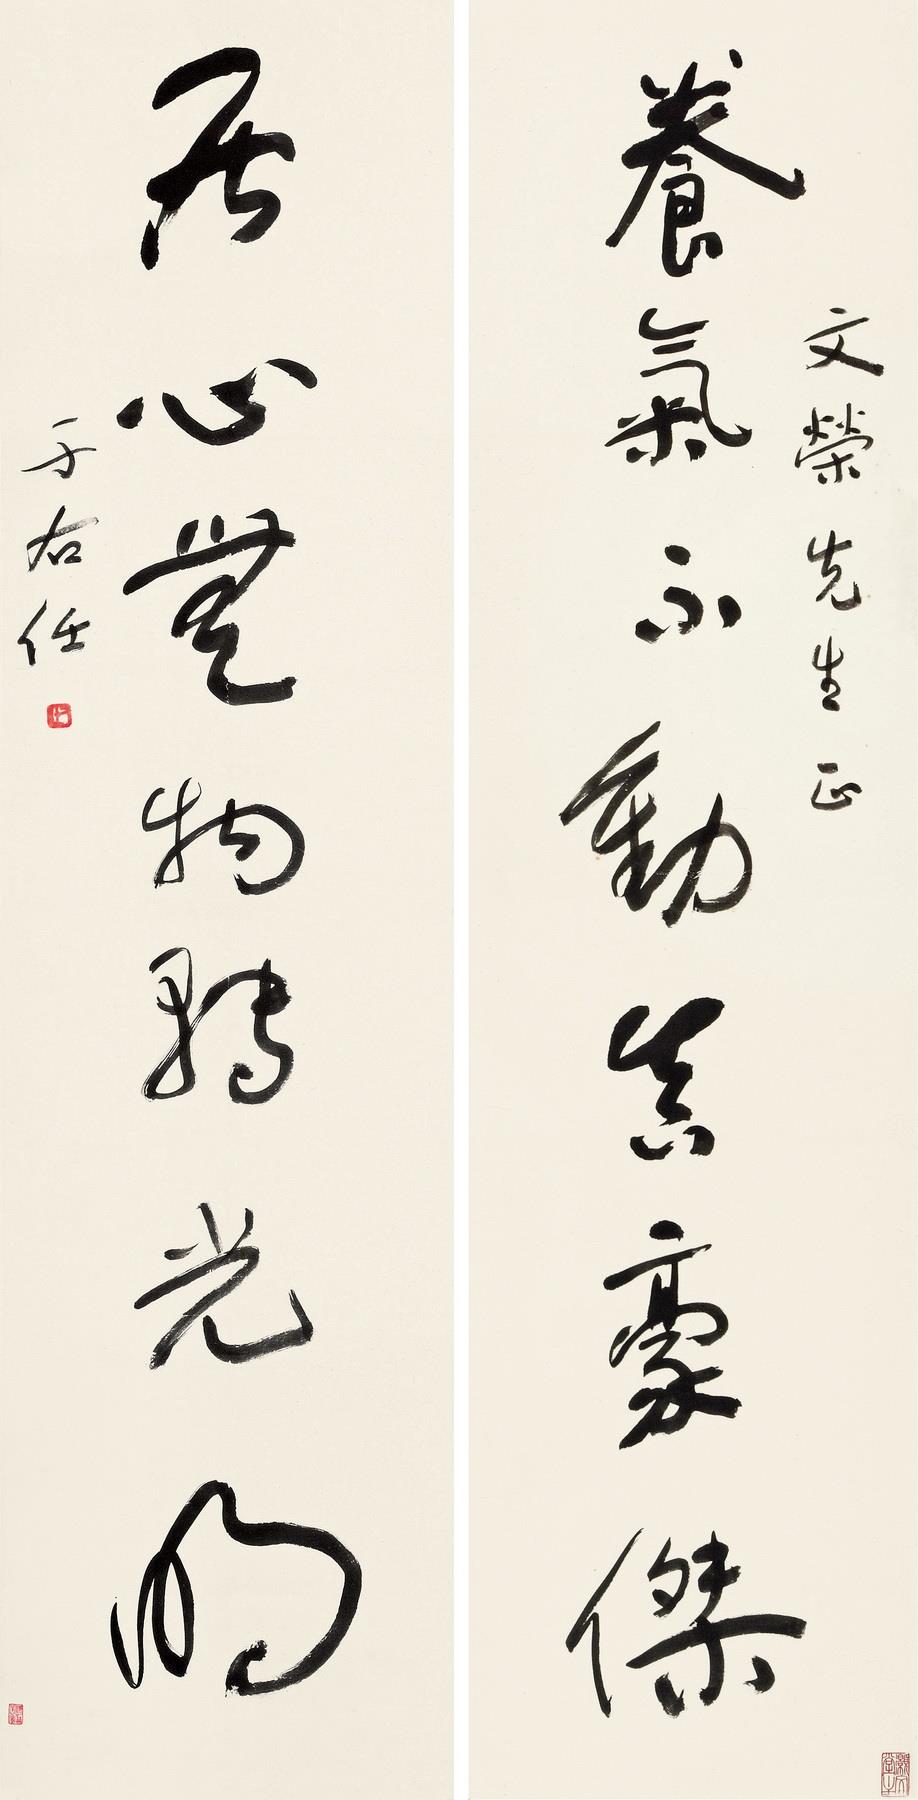 養氣不動真豪傑
文榮先生正
居心無物轉光明
于右任